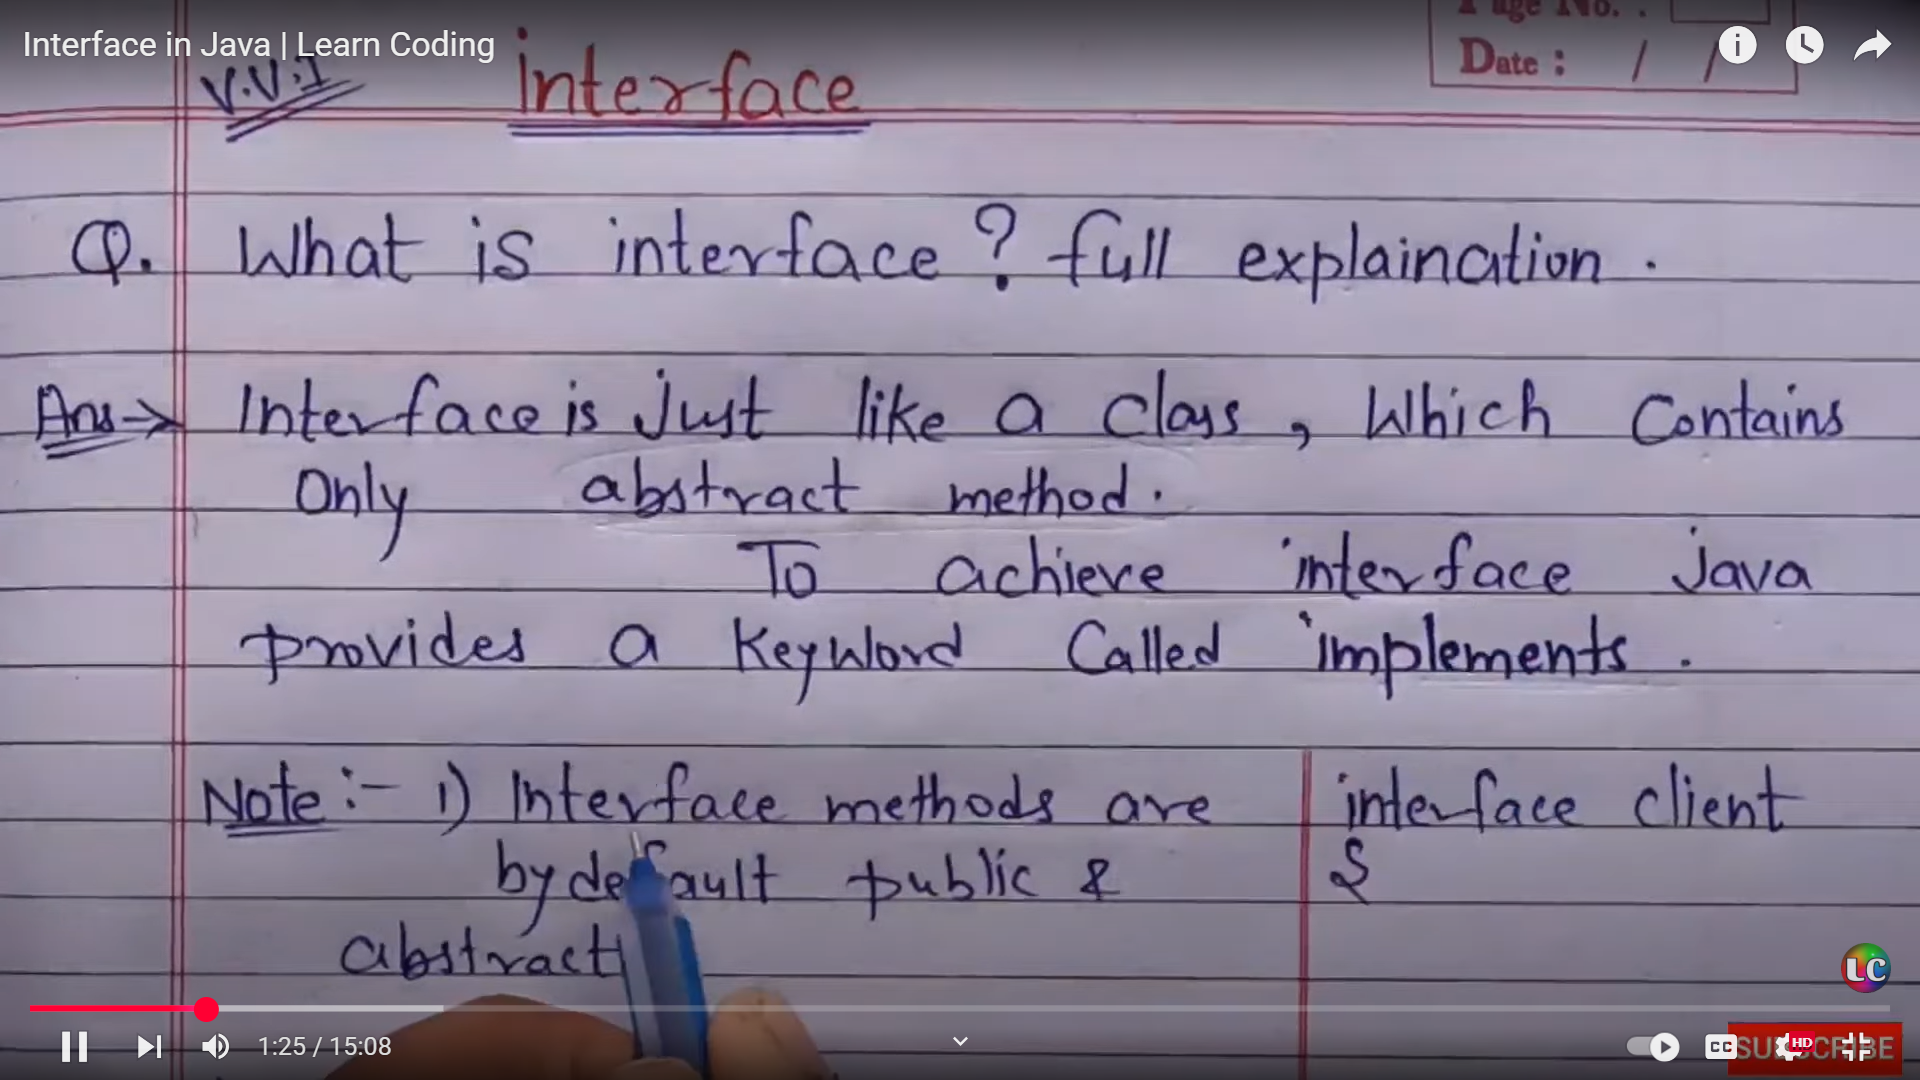 Interface in Java | Learn Coding
Page No. :
Date : / /
V.V.I
Interface
Q. What is interface ? full explaination .
Ans→ Interface is Just like a Class , Which Contains
Only abstract method .
To achieve interface Java
provides a Keyword Called implements .
Note :- 1) Interface methods are
by default public & abstract
interface client
{
LC
1:25 / 15:08
CC
HD
SUBSCRIBE